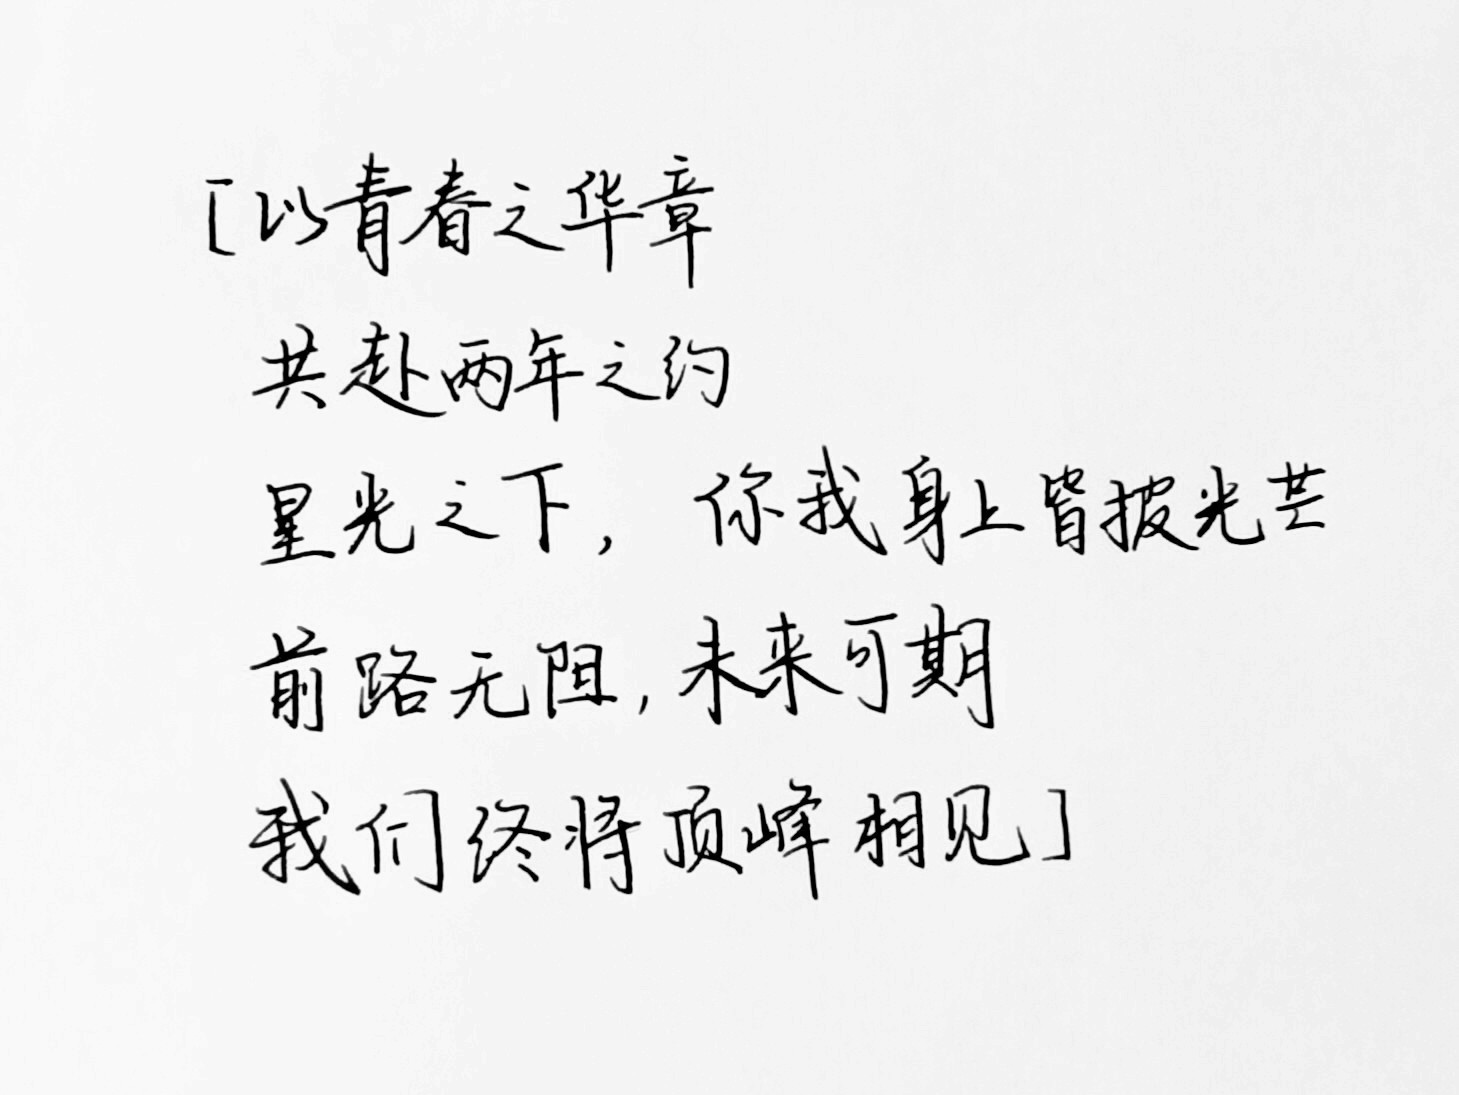 [以青春之华章
共赴两年之约
星光之下，你我身上皆披光芒
前路无阻,未来可期
我们终将顶峰相见]